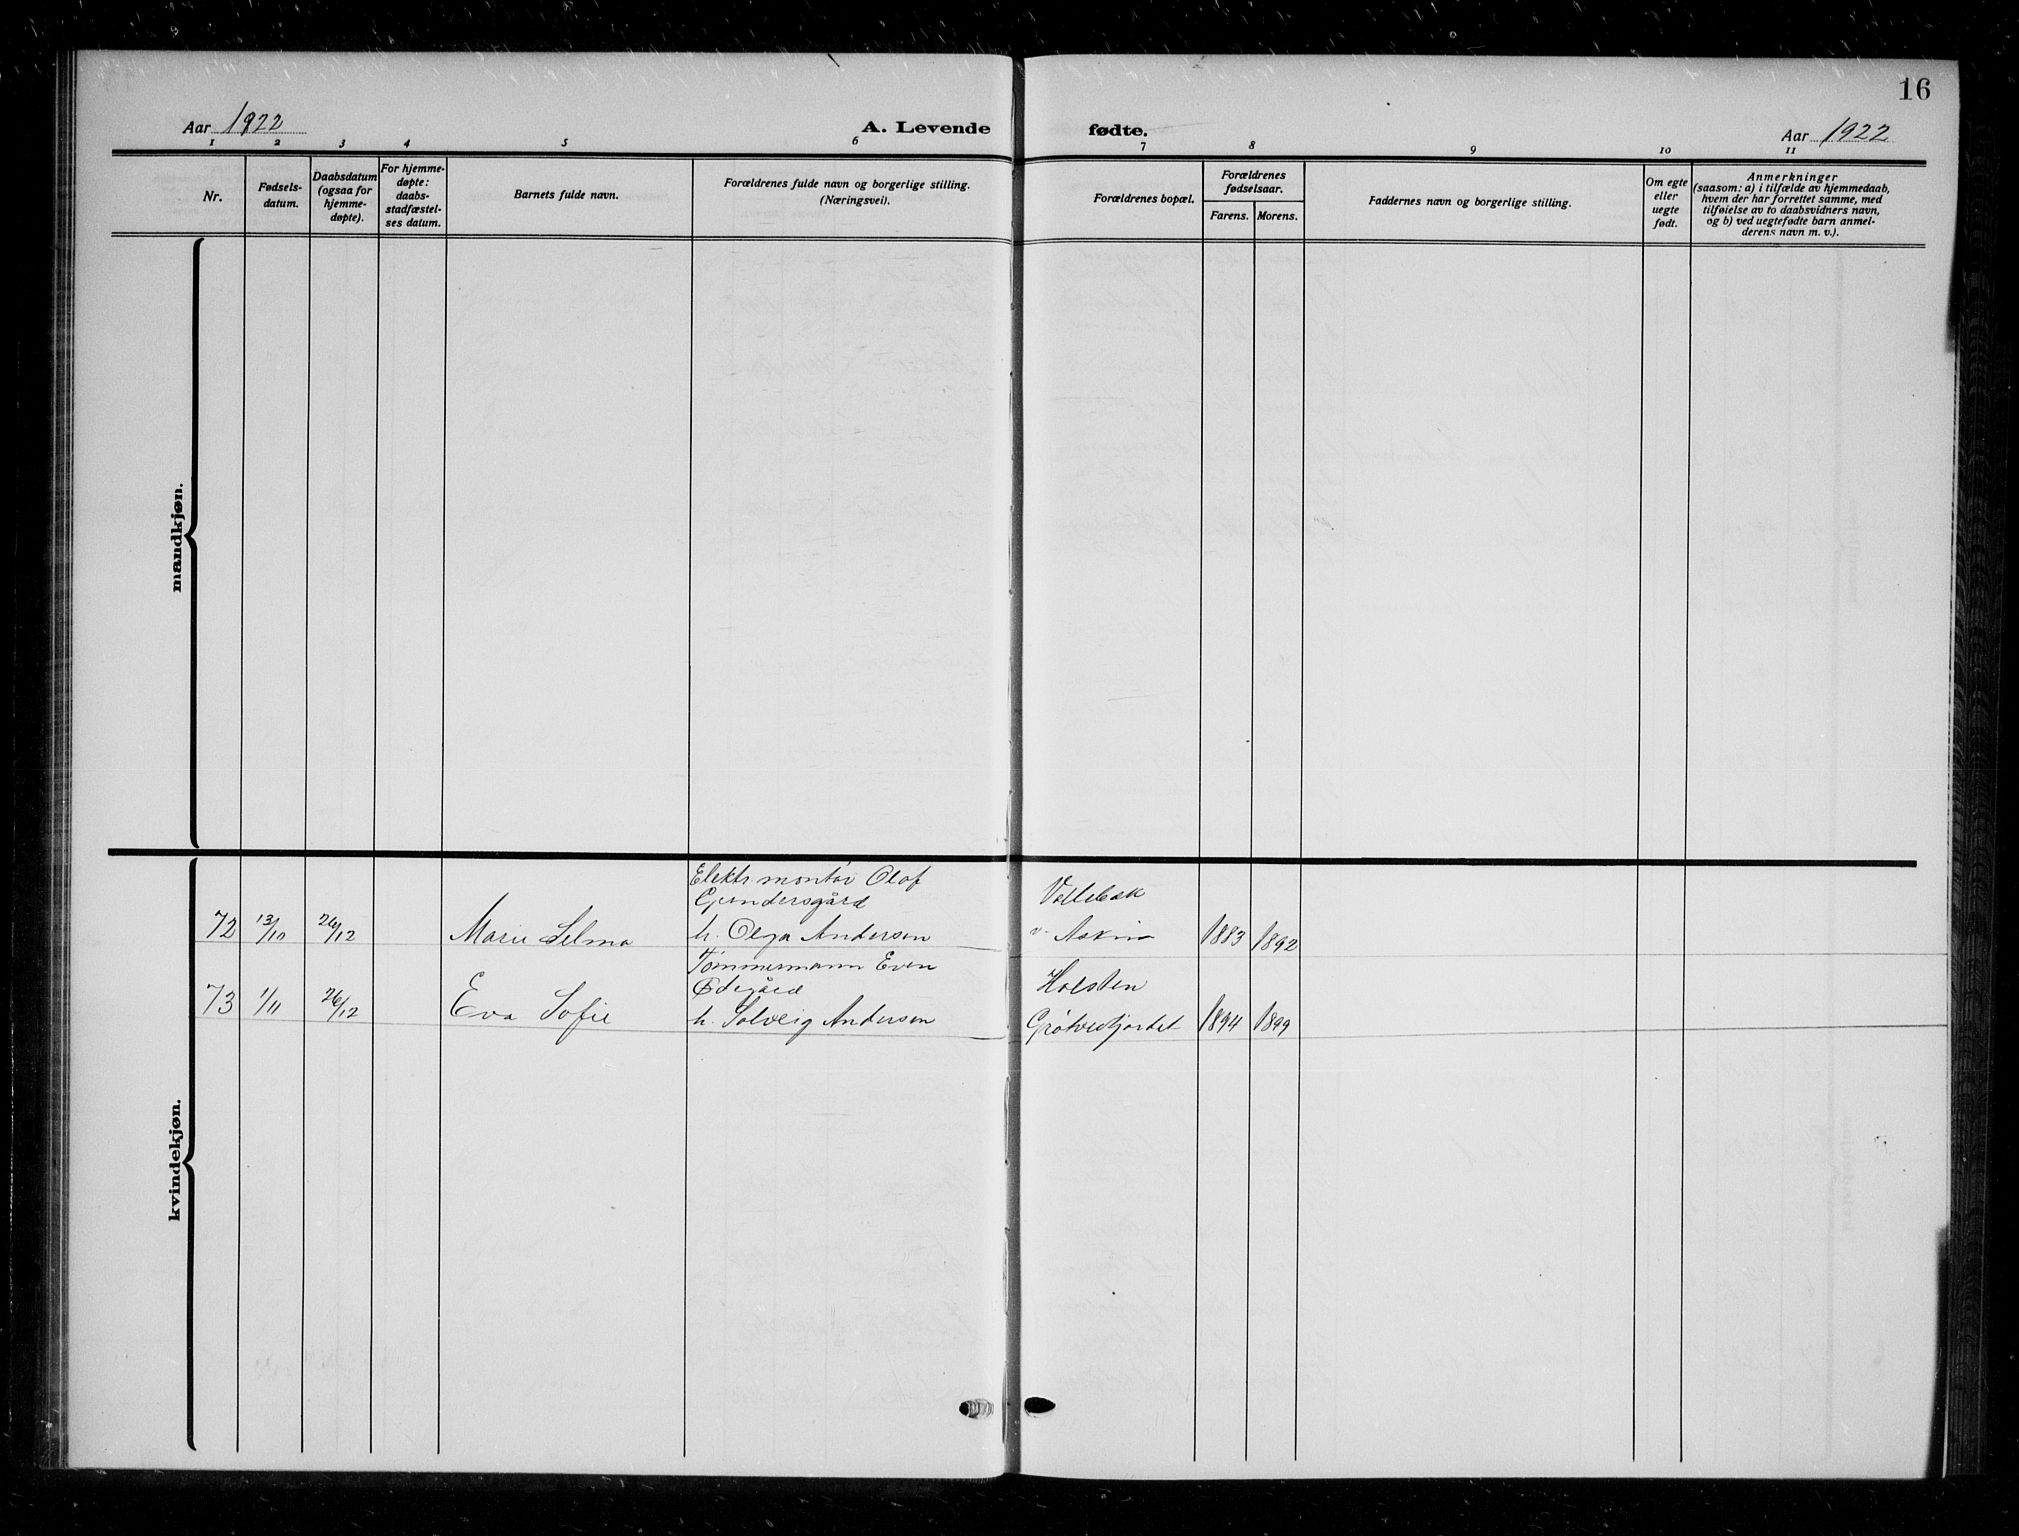 16
Aar 1922
A. Levende fødte.
Aar 1922
1 2 3 4 5 6 7 8 9 10 11
Nr.
Fødsels-
datum.
Daabsdatum
(ogsaa for
hjemme-
døpte).
For hjemme-
døpte:
daabs-
stadfæstel-
ses datum.
Barnets fulde navn.
Forældrenes fulde navn og borgerlige stilling.
(Næringsvei).
Forældrenes bopæl.
Forældrenes
fødselsaar.
Farens. Morens.
Faddernes navn og borgerlige stilling.
Om egte
eller
uegte
født.
Anmerkninger
(saasom: a) i tilfælde av hjemmedaab,
hvem der har forrettet samme, med
tilføielse av to daabsvidners navn,
og b) ved uegtefødte barn anmel-
derens navn m. v.).
mandkjøn.
kvindekjøn.
Elektr. montør Olof
Gundersgård Vallebæk
72 13/10 26/12 Marie Selma h. Olga Andersen v. Askim 1883 1892
Tømmermann Even
Ødegård Holsten
73 1/11 26/12 Eva Sofie h. Solveig Andersen Grøtvedtjordet 1894 1899